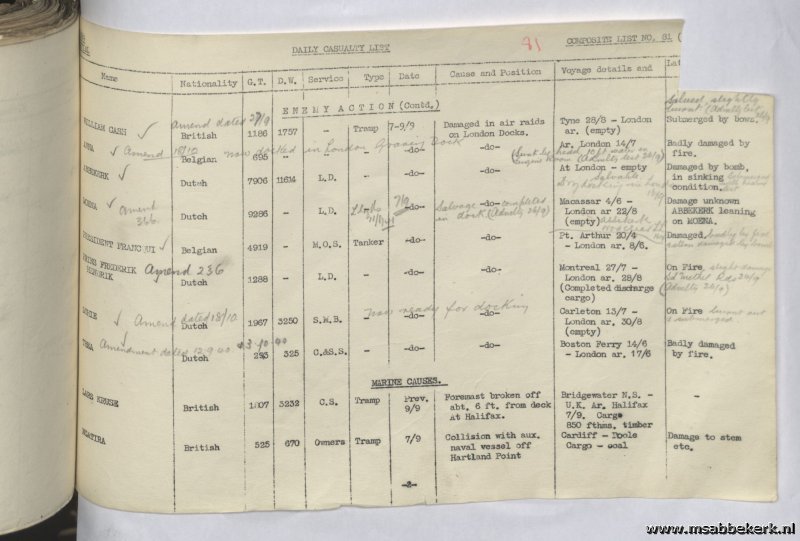 DAILY CASUALTY LIST 81 COMPOSITE LIST NO. 81 (
Name Nationality G.T. D.W. Service Type Date Cause and Position Voyage details and Lat
ENEMY ACTION (Contd.)
WILLIAM CASH Amend dated 27/9
British 1186 1757 - Tramp 7-9/9 Damaged in air raids on London Docks. Tyne 28/8 - London ar. (empty) Submerged by bows.
Amend 18/10 now docked in London Graving Dock
Belgian 695 - - - -do- -do- Ar. London 14/7 Badly damaged by fire.
ABBEKERK
Dutch 7906 11614 L.D. - -do- -do- At London - empty Damaged by bomb, in sinking condition.
MOENA Amend 366
Dutch 9286 - L.D. 7/9 -do- Salvage completed in dock (Admlty 26/9) Macassar 4/6 - London ar 22/8 (empty) Damage unknown ABBEKERK leaning on MOENA.
PRESIDENT FRANCQUI
Belgian 4919 - M.O.S. Tanker -do- -do- Pt. Arthur 20/4 - London ar. 8/6. Damaged,
PRINS FREDERIK HENDRIK Amend 236
Dutch 1288 - L.D. - -do- -do- Montreal 27/7 - London ar. 28/8 (Completed discharge cargo) On Fire slight damage
Amend dated 18/10 Now ready for docking
Dutch 1967 3250 S.M.B. - -do- -do- Carleton 13/7 - London ar. 30/8 (empty) On Fire
Amendment dated 12.9.40
Dutch 293 325 C.&S.S. - -do- -do- Boston Ferry 14/6 - London ar. 17/6 Badly damaged by fire.
MARINE CAUSES.
LARS KRUSE
British 1807 3232 C.S. Tramp Prev. 9/9 Foremast broken off abt. 6 ft. from deck At Halifax. Bridgewater N.S. - U.K. Ar. Halifax 7/9. Cargo 850 fthms. timber -
British 525 670 Owners Tramp 7/9 Collision with aux. naval vessel off Hartland Point Cardiff - Poole Cargo - coal Damage to stem etc.
-2-
www.msabbekerk.nl